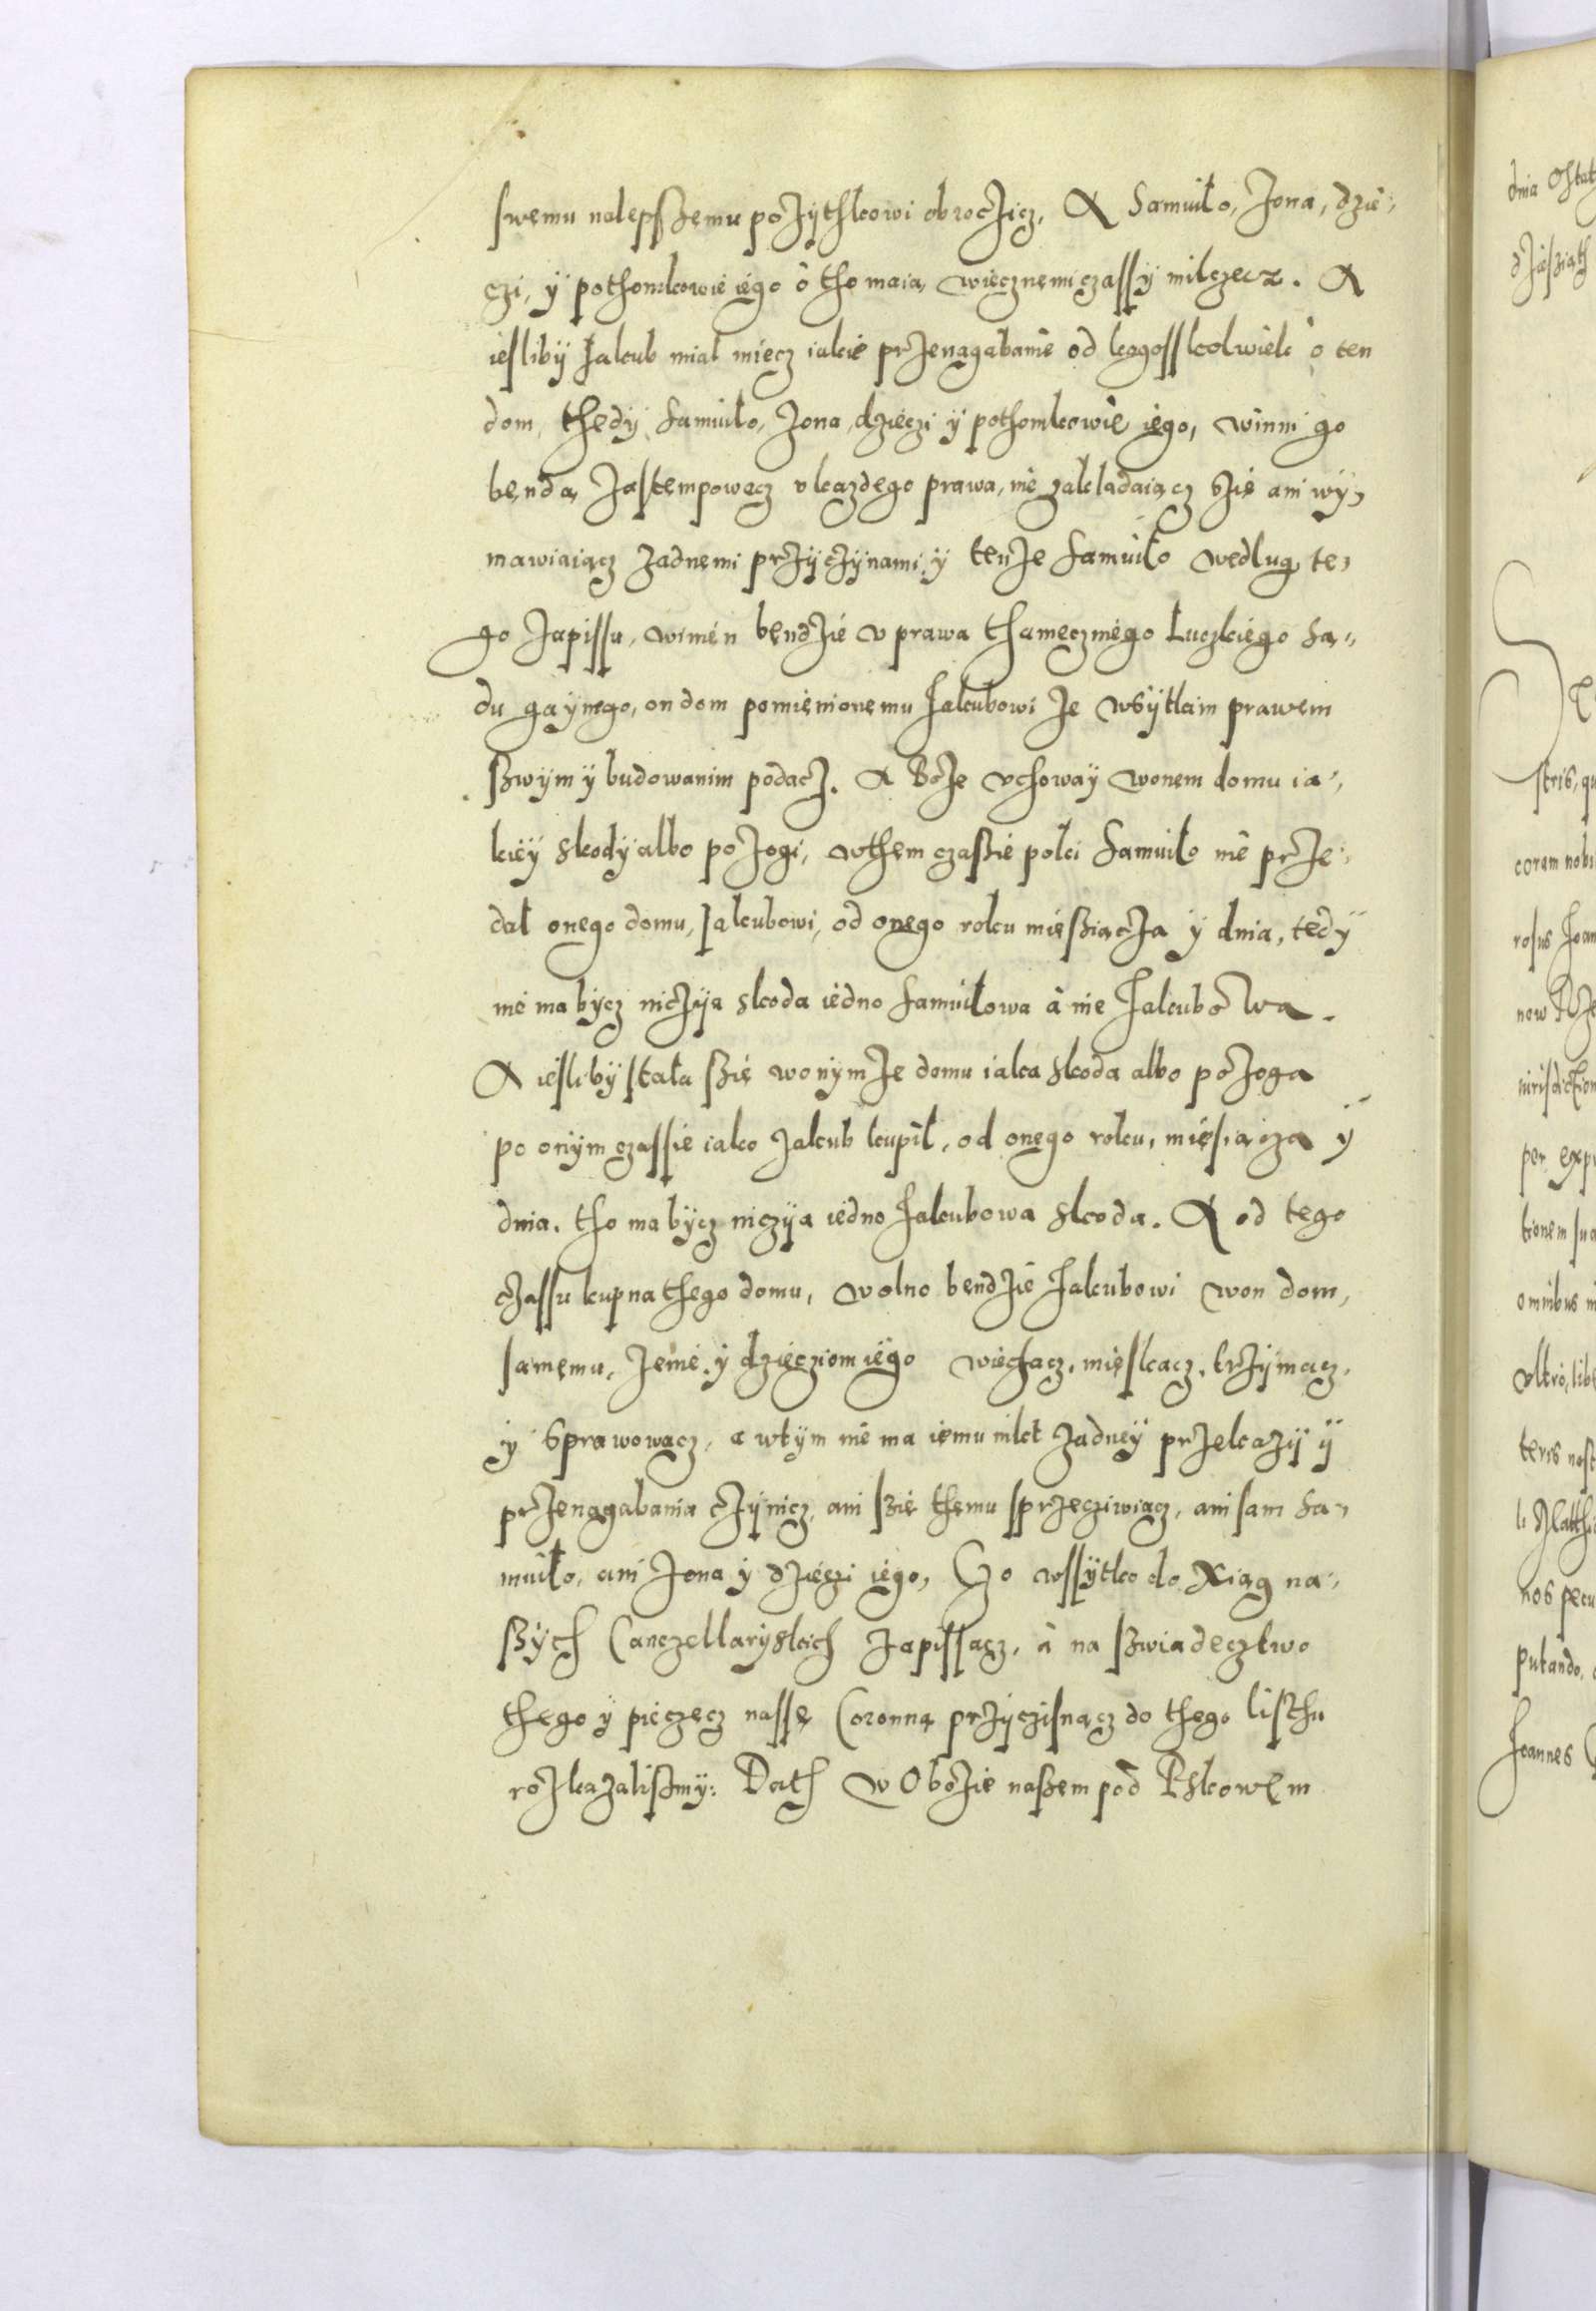 swemu nalepszemu pożythkowi obroczicz. A Samuiło, żona, dzie-
czi, y pothomkowie iego o tho maią wiecznemi czassÿ milczecz. A
iesliby Jakub miał miecz iakie przenagabanie od kogosskolwiek o ten
dom, thedy Samuiło, żona, dzieczi y pothomkowie iego, winni go
bendą zastempowacz v kazdego prawa, nie zakładaiącz szie ani wy-
mawiaiącz żadnemi przyczynami, y tenże Samuiło według te-
go zapissu, winien bendzie v prawa thamecznego Łuczkiego są-
du gaynego, on dom pomienionemu Jakubowi ze wsytkim prawem
szwym y budowanim podacz. A Boże vchoway w onem domu ia-
kiey skody albo pożogi, w them czaszie poki Samuiło nie prze-
dał onego domu, Jakubowi, od onego roku miesziącza y dnia, tedy
nie ma bycz niczyia skoda iedno Samuiłowa a nie Jakubowa.
A iesliby stała szie w onymże domu iaka skoda albo pożoga
po onym czassie iako Jakub kupił, od onego roku, miesiącza y
dnia, tho ma bycz niczyia iedno Jakubowa skoda. A od tego
czassu kupna thego domu, wolno bendzie Jakubowi w on dom,
samemu, żenie y dziecziom iego wiechacz, mieskacz, trzymacz,
y sprawowacz, a w tym nie ma iemu nikt żadney przekazy y
przenagabania czynicz, ani szie themu sprzecziwiacz, ani sam Sa-
muiło, ani żona y dzieczi iego, Czo wssytko do Xiąg na-
szych Canczellaryskich zapissacz, a na szwiadecztwo
thego y pieczecz nasse Coronną przyczisnącz do thego listhu
rozkazaliszmy: Dath w Obozie naszem pod Pskowem